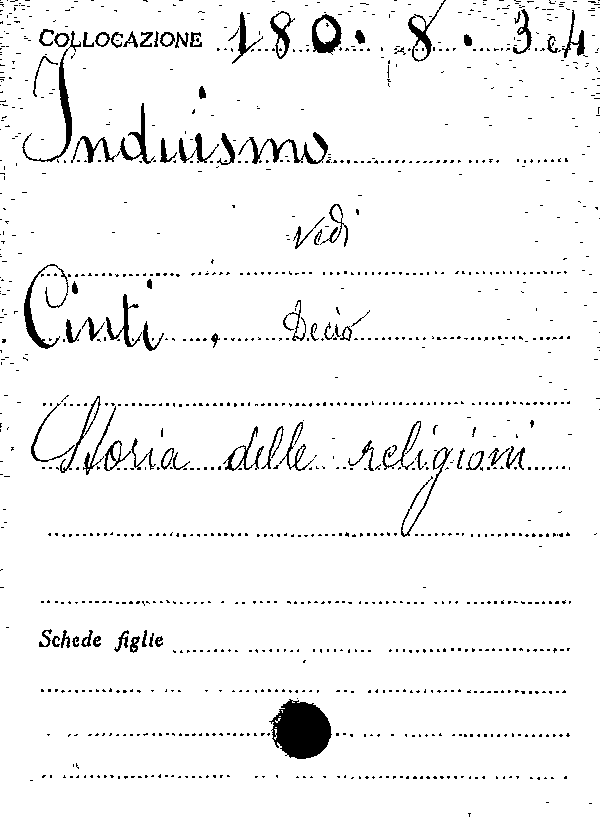 COLLOCAZIONE 180. 8. 3 e 4
Induismo
vedi
Cinti, Decio
Storia delle religioni
Schede figlie